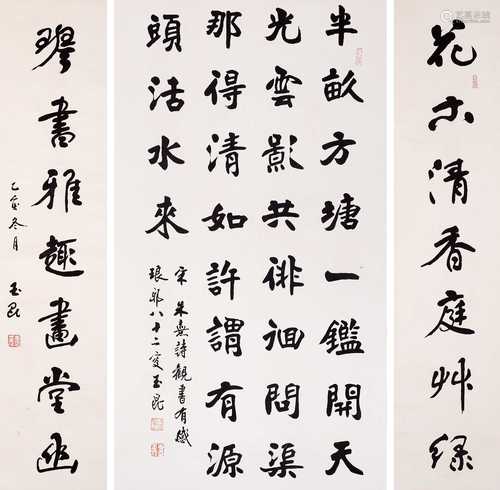 花木清香庭艸綠
半畝方塘一鑑開天
光雲影共徘徊問渠
那得清如許謂有源
頭活水來
宋 朱熹詩觀書有感
琅邪八十二叟玉昆
書雅趣畫堂幽
乙亥冬月 玉昆